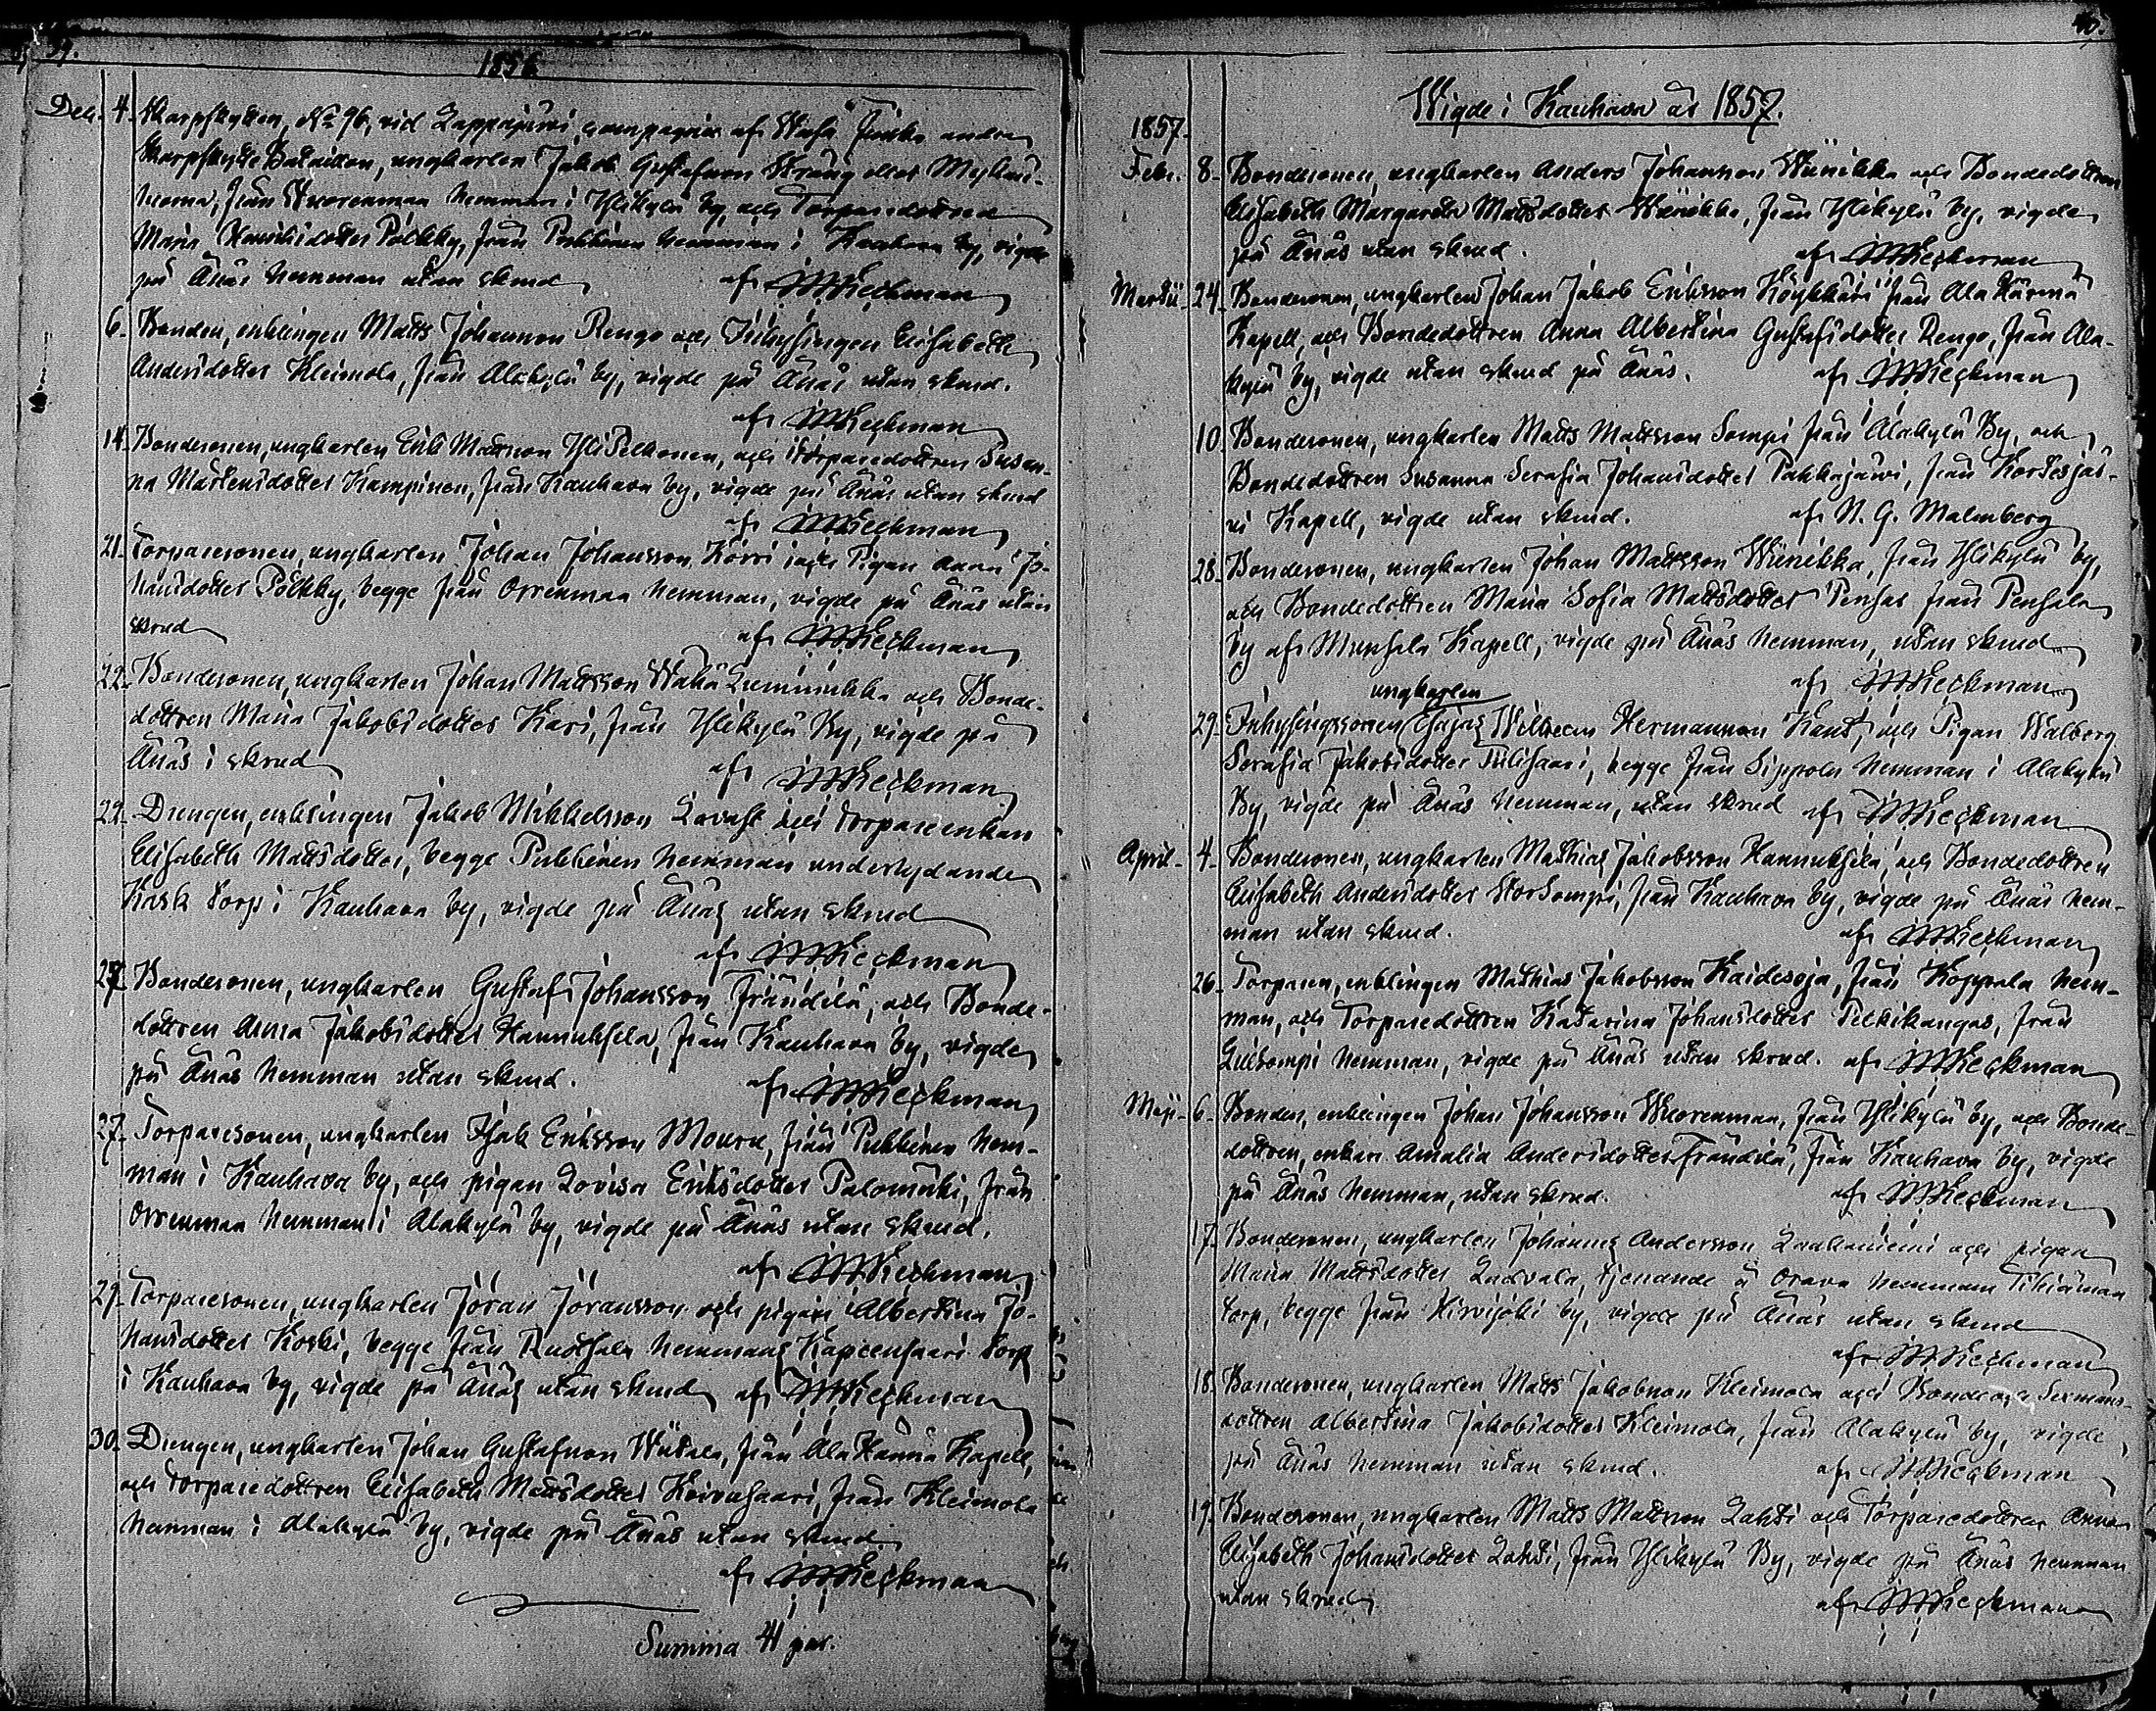 39.
1856
Dec. 4. Skarpskytten, No 96, vid Lappajärvi compagnie af Wasa Finska andra
Skarpskytte Bataillon, ungkarlen Jakob Gustafsson Sträng eller Myllari-
, från Wuorenmaa hemman i Ylikylä by, och Torparedottren
Maria Henriksdotter Pölkky, från Pukkinen hemman i Kauhava by, vigde
på Änäs hemman utan skrud af
6. Bonden, enklingen Matts Johansson Rengo och Inhysingen Elisabeth
Andersdotter Kleimola, från Alakylä by, vigde på Änäs utan skrud.
af
14. Bondesonen, ungkarlen Erik Mattsson YliPelkonen, och Torparedottren Susan-
na Mårtensdotter Kampinen, från Kauhava by, vigde på Änäs utan skrud
af
21. Torparesonen, ungkarlen Johan Johansson Korri och Pigan Anna Jo-
hansdotter Pölkky, begge från Orrenmaa hemman, vigde på Änäs utan
skrud af
22. Bondesonen, ungkarlen Johan Mattsson WähäLummukka och Bonde-
dottren Maria Jakobsdotter Kari, från Ylikylä By, vigde på
Änäs i skrud af
22. Drengen, enklingen Jakob Mikkelsson Lavast och Torpareenkan
Elisabeth Mattsdotter, begge Pukkinen hemman underlydande
Kask torp i Kauhava by, vigde på Änäs utan skrud
af
27. Bondesonen, ungkarlen Gustaf Johansson Frändilä, och Bonde-
dottren Anna Jakobsdotter Hannuksela, från Kauhava by, vigde
på Änäs hemman utan skrud. af
27. Torparesonen, ungkarlen Isak Eriksson Mouru, från Pukkinen hem-
man i Kauhava by, och pigan Lovisa Eriksdotter Palomäki, från
Orrenmaa hemman i Alakylä by, vigde på Änäs utan skrud.
af
29. Torparesonen, ungkarlen Jöran Jöransson och pigan Albertina Jo-
hansdotter Koski, begge från Ruotsala hemmans torp
i Kauhava by, vigde på Änäs utan skrud af
30. Drengen, ungkarlen Johan Gustafsson Wiitala, från Ala Härmä Kapell,
och Torparedottren Elisabeth Mattsdotter Koivusaari, från Kleimola
hemman i Alakylä by, vigde på Änäs utan skrud.
af
Summa 41 par.
40.
Wigde i Kauhava år 1857.
1857.
Febr. 8. Bondesonen, ungkarlen Anders Johansson Wiinikka och Bondedottren
Elisabeth Margareta Mattsdotter Wiinikka, från Ylikylä by, vigde
på Änäs utan skrud. af
Martii 24. Bondesonen, ungkarlen Johan Jakob Eriksson Köykkäri från Ala Härmä
Kapell, och Bondedottren Anna Albertina Gustafsdotter Rengo, från Ala-
kylä by, vigde utan skrud på Änäs. af
10. Bondesonen, ungkarlen Matts Mattsson Sompi från Alakylä By, och
Bondedottren Susanna Serafia Johansdotter Pakkajärvi, från Kortesjär-
vi Kapell, vigde utan skrud. af N. G. Malmberg
28. Bondesonen, ungkarlen Johan Mattsson Wiinikka, från Ylikylä by,
och Bondedottren Maria Sofia Mattsdotter Pensar från Pensala
by af Munsala Kapell, vigde på Änäs hemman, utan skrud
af
ungkarlen
29. Inhysingssonen Esajas Wilhelm Hermansson Kant, och Pigan Walborg
Serafia Jakobsdotter Tulisaari, begge från Sippola hemman i Alakylä
By, vigde på Änäs hemman, utan skrud af
April 4. Bondesonen, ungkarlen Mathias Jakobsson Hannuksela, och Bondedottren
Elisabeth Andersdotter StorSompi, från Kauhava by, vigde på Änäs hem-
man utan skrud. af
26. Torparen, enklingen Mathias Jakobsson Kaidesoja, från Köppala hem-
man, och Torparedottren Katarina Johansdotter Pelkikangas, från
LillSompi hemman, vigde på Änäs utan skrud. af
Maji 6. Bonden, enklingen Johan Johansson Wuorenmaa, från Ylikylä by, och Bonde-
dottren, enkan Amalia Andersdotter Frändilä, från Kauhava by, vigde
på Änäs hemman, utan skrud. af
17. Bondesonen, ungkarlen Johannes Andersson Laakaniemi och pigan
Maria Mattsdotter Ladvala, tjenande å Orava hemmans
torp, begge från Hirvijoki by, vigde på Änäs utan skrud
af
18. Bondesonen, ungkarlen Matts Jakobsson Kleimola och Bonde och Sexmans-
dottren Albertina Jakobsdotter Kleimola, från Alakylä by, vigde
på Änäs hemman utan skrud. af
19. Bondesonen, ungkarlen Matts Mattsson Lahti och Torparedottren Anna
Elisabeth Johansdotter Lahti, från Ylikylä By, vigde på Änäs hemman
utan skrud af